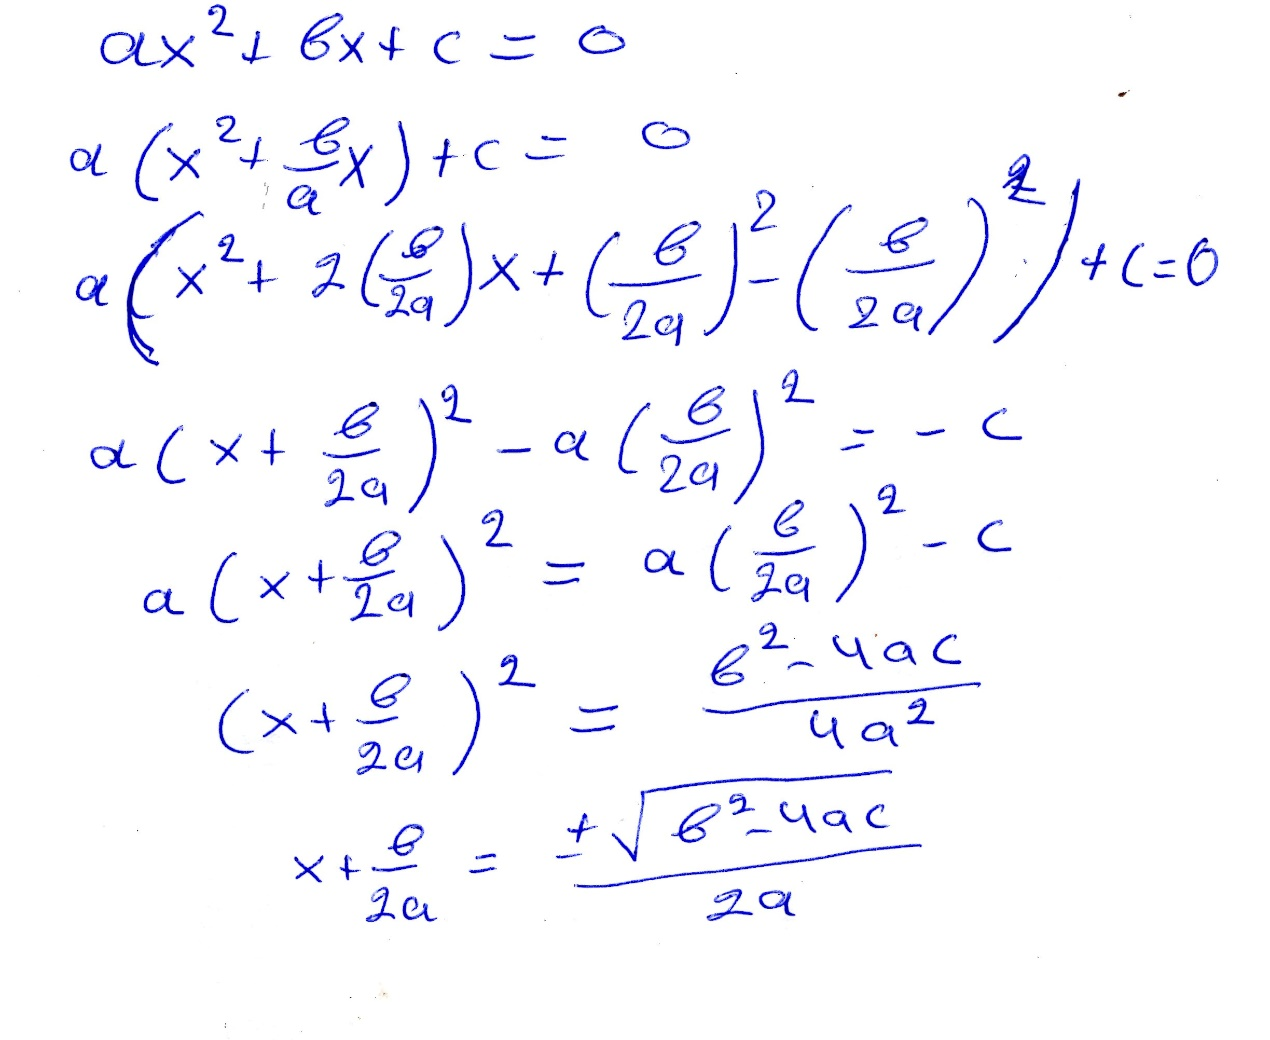 ax² + bx + c = 0
a(x² + b/a x) + c = 0
a(x² + 2(b/2a)x + (b/2a)² - (b/2a)²) + c = 0
a(x + b/2a)² - a(b/2a)² = -c
a(x + b/2a)² = a(b/2a)² - c
(x + b/2a)² = (b² - 4ac)/4a²
x + b/2a = ±√(b² - 4ac)/2a